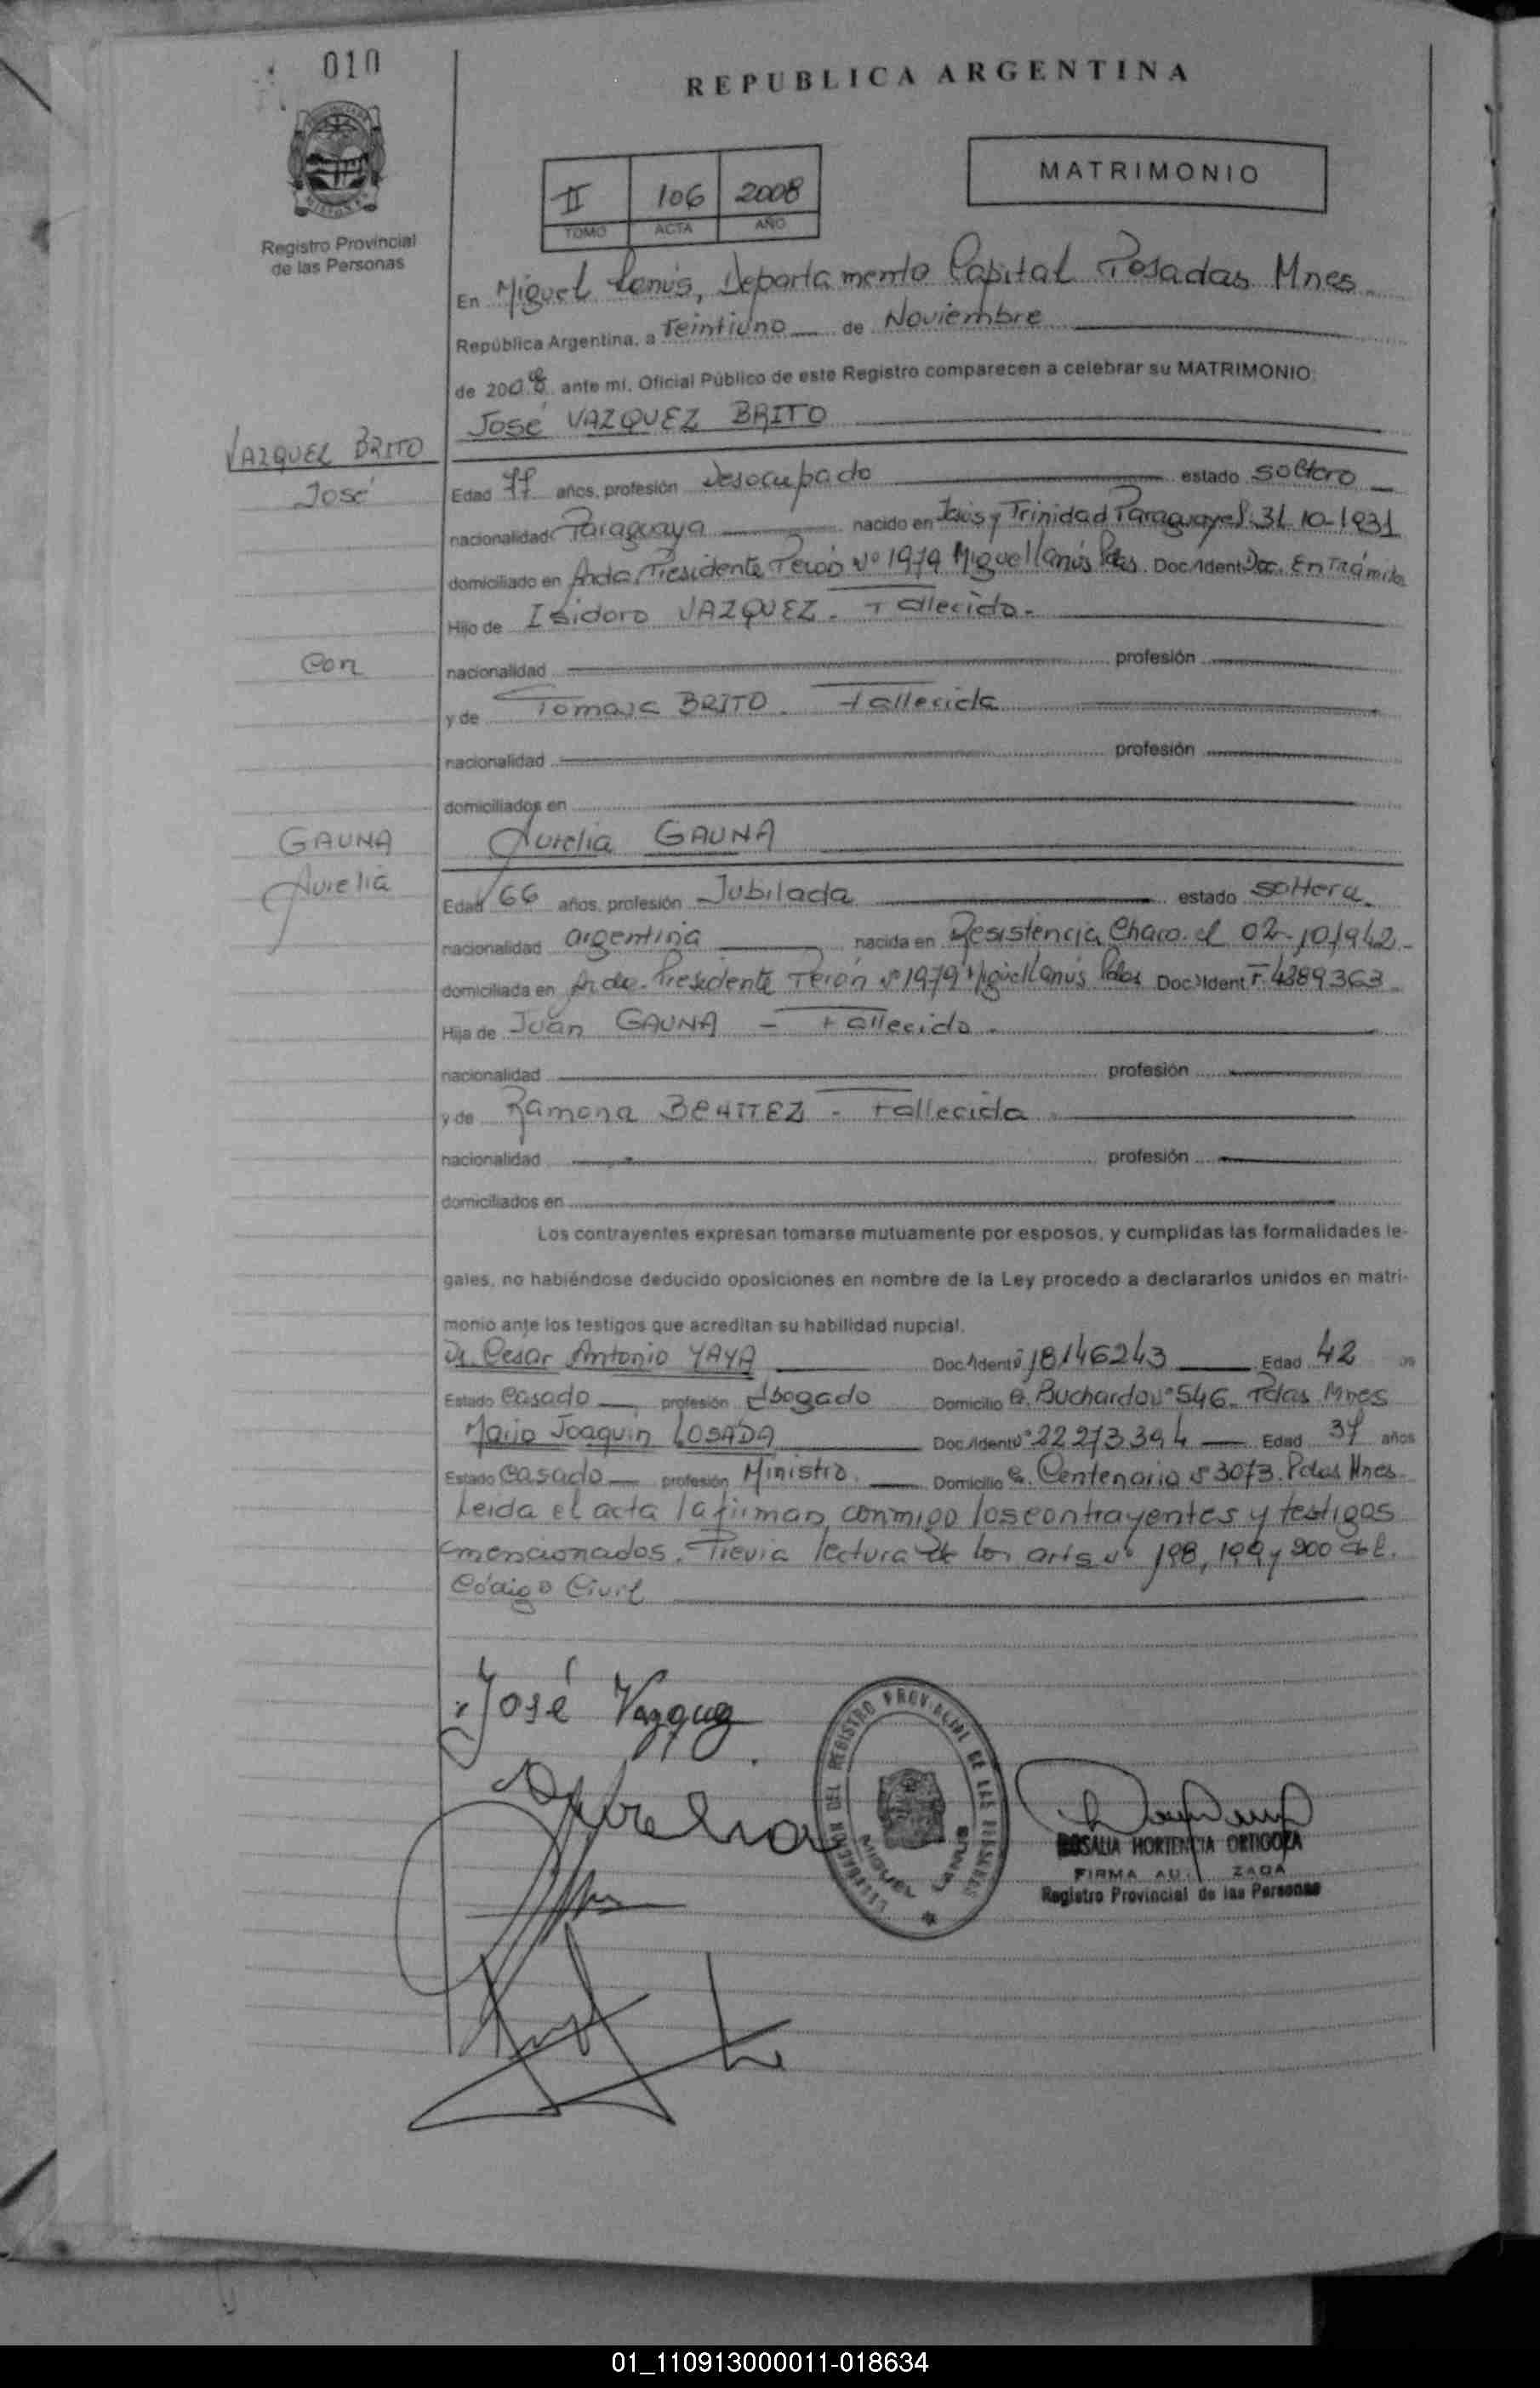 010
REPUBLICA ARGENTINA
MATRIMONIO
II 106 2008
TOMO ACTA AÑO
Registro Provincial
de las Personas
En Miguel Lanús, Departamento Capital Posadas Mnes.
República Argentina, a Veintiuno de Noviembre
de 2008 ante mi, Oficial Público de este Registro comparecen a celebrar su MATRIMONIO:
José VAZQUEZ BRITO
VAZQUEZ BRITO
José
Edad 77 años, profesión Desocupado estado soltero
nacionalidad Paraguaya nacido en Jesús y Trinidad Paraguay el 31-10-1931
domiciliado en Avda. Presidente Perón Nº 1979 Miguel Lanús Pdas. Doc/Ident Doc. En Trámite
Hijo de Isidoro VAZQUEZ - Fallecido.
con
nacionalidad profesión
y de Tomasa BRITO - Fallecida
nacionalidad profesión
domiciliados en
Aurelia GAUNA
GAUNA
Aurelia
Edad 66 años, profesión Jubilada estado soltera.
nacionalidad argentina nacida en Resistencia Chaco el 02-10-1942
domiciliada en Avda. Presidente Perón Nº 1979 Miguel Lanús Pdas Doc/Ident F. 4289363
Hija de Juan GAUNA - Fallecido.
nacionalidad profesión
y de Ramona BENITEZ - Fallecida
nacionalidad profesión
domiciliados en
Los contrayentes expresan tomarse mutuamente por esposos, y cumplidas las formalidades le-
gales, no habiéndose deducido oposiciones en nombre de la Ley procedo a declararlos unidos en matri-
monio ante los testigos que acreditan su habilidad nupcial.
Dr. Cesar Antonio YAYA Doc/Ident Nº 18146243 Edad 42
Estado Casado profesión Abogado Domicilio C. Buchardo Nº 546 Pdas Mnes
Mario Joaquin LOSADA Doc/Ident Nº 22273394 Edad 37 años
Estado Casado profesión Ministro Domicilio C. Centenario Nº 3073. Pdas Mnes.
Leida el acta la firman conmigo los contrayentes y testigos
mencionados. Previa lectura de los arts Nº 198, 199 y 200 del
Código Civil
José Vazquez
Aurelia
DELEGACION DEL REGISTRO PROVINCIAL DE LAS PERSONAS
MIGUEL LANUS
ROSALIA HORTENCIA ORTIGOZA
FIRMA AU ZADA
Registro Provincial de las Personas
01_110913000011-018634